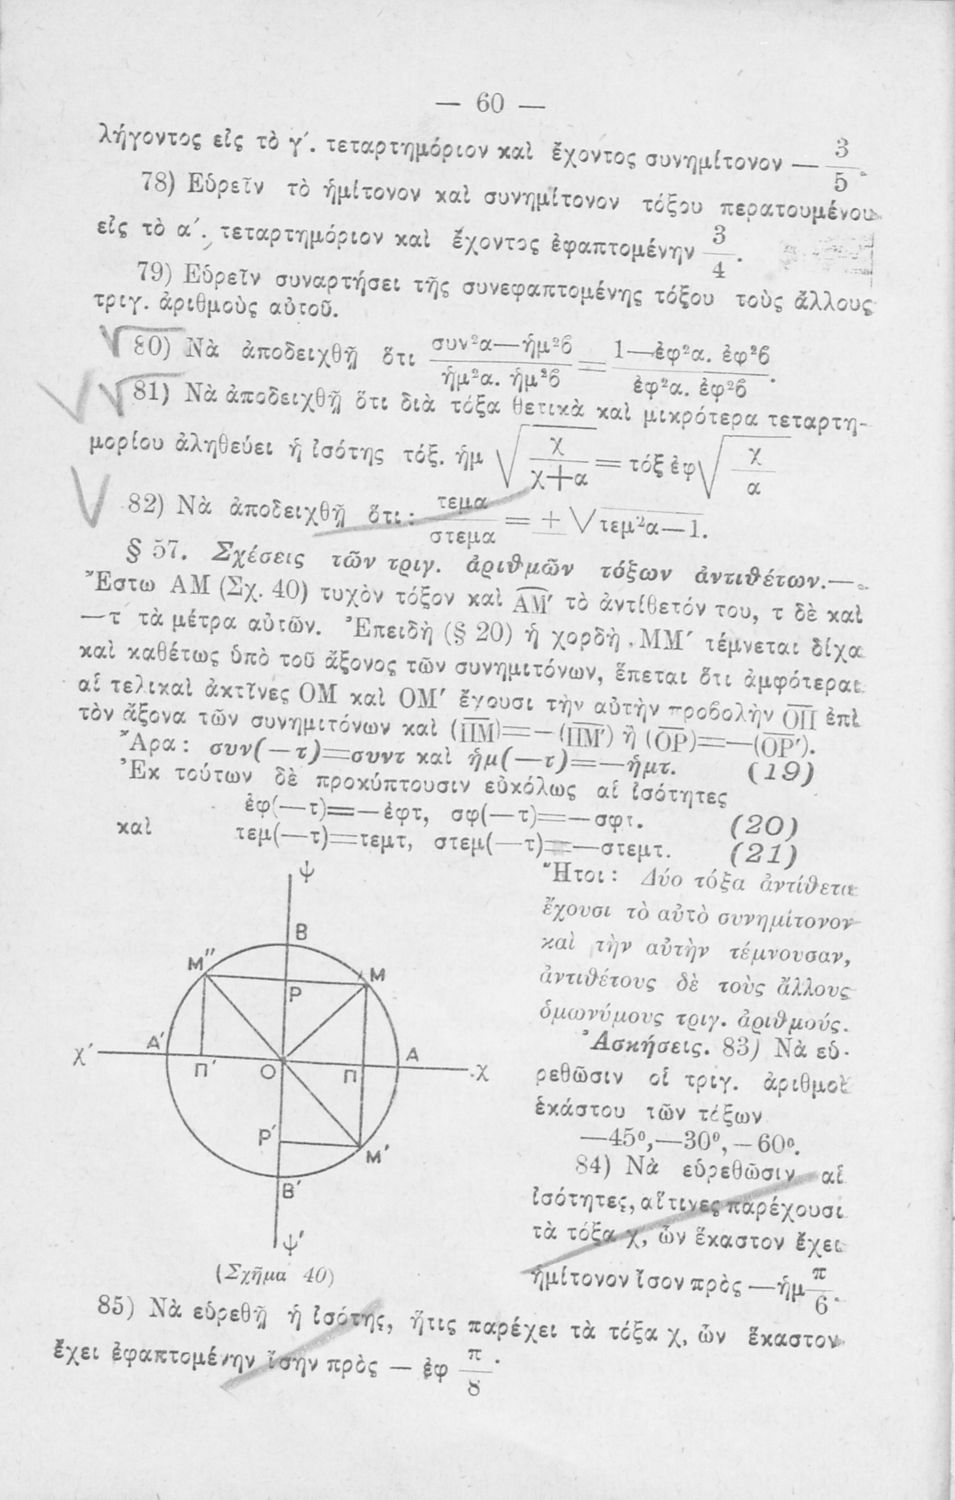 — 60 —
λήγοντος εἰς τὸ γ΄. τεταρτημόριον καὶ ἔχοντος συνημίτονον — 3/5.
78) Εὑρεῖν τὸ ἡμίτονον καὶ συνημίτονον τόξου περατουμένου
εἰς τὸ α΄. τεταρτημόριον καὶ ἔχοντος ἐφαπτομένην 3/4.
79) Εὑρεῖν συναρτήσει τῆς συνεφαπτομένης τόξου τοὺς ἄλλους
τριγ. ἀριθμοὺς αὐτοῦ.
80) Νὰ ἀποδειχθῇ ὅτι (συν²α—ἡμ²β)/(ἡμ²α. ἡμ²β) = (1—ἐφ²α. ἐφ²β)/(ἐφ²α. ἐφ²β).
81) Νὰ ἀποδειχθῇ ὅτι διὰ τόξα θετικὰ καὶ μικρότερα τεταρτη-
μορίου ἀληθεύει ἡ ἰσότης τόξ. ἡμ √(χ/(χ+α)) = τόξ ἐφ √(χ/α)
82) Νὰ ἀποδειχθῇ ὅτι: τεμα/στεμα = ± √τεμ²α—1.
§ 57. Σχέσεις τῶν τριγ. ἀριθμῶν τόξων ἀντιθέτων.—
Ἔστω ΑΜ (Σχ. 40) τυχὸν τόξον καὶ ΑΜ′ τὸ ἀντίθετόν του, τ δὲ καὶ
—τ τὰ μέτρα αὐτῶν. Ἐπειδὴ (§ 20) ἡ χορδὴ ΜΜ′ τέμνεται δίχα
καὶ καθέτως ὑπὸ τοῦ ἄξονος τῶν συνημιτόνων, ἕπεται ὅτι ἀμφότεραι
αἱ τελικαὶ ἀκτῖνες ΟΜ καὶ ΟΜ′ ἔχουσι τὴν αὐτὴν προβολὴν ΟΠ ἐπὶ
τὸν ἄξονα τῶν συνημιτόνων καὶ (ΠΜ)=—(ΠΜ′) ἢ (ΟΡ)=—(ΟΡ′).
Ἄρα: συν(—τ)=συντ καὶ ἡμ(—τ)=—ἡμτ. (19)
Ἐκ τούτων δὲ προκύπτουσιν εὐκόλως αἱ ἰσότητες
ἐφ(—τ)=—ἐφτ, σφ(—τ)=—σφτ. (20)
καὶ τεμ(—τ)=τεμτ, στεμ(—τ)=—στεμτ. (21)
Ἤτοι: Δύο τόξα ἀντίθετα
ἔχουσι τὸ αὐτὸ συνημίτονον
καὶ τὴν αὐτὴν τέμνουσαν,
ἀντιθέτους δὲ τοὺς ἄλλους
ὁμωνύμους τριγ. ἀριθμούς.
Ἀσκήσεις. 83) Νὰ εὑ-
ρεθῶσιν οἱ τριγ. ἀριθμοὶ
ἑκάστου τῶν τόξων
—45⁰,—30⁰,—60⁰.
84) Νὰ εὑρεθῶσιν αἱ
ἰσότητες, αἵτινες παρέχουσι
τὰ τόξα χ, ὧν ἕκαστον ἔχει
ἡμίτονον ἴσον πρὸς —ἡμ π/6.
ψ
Β
Μ″
Μ
Ρ
Α′
Α
χ′
Π′
Ο
Π
χ
Ρ′
Μ′
Β′
ψ′
(Σχῆμα 40)
85) Νὰ εὑρεθῇ ἡ ἰσότης, ἥτις παρέχει τὰ τόξα χ, ὧν ἕκαστον
ἔχει ἐφαπτομένην ἴσην πρὸς — ἐφ π/8.